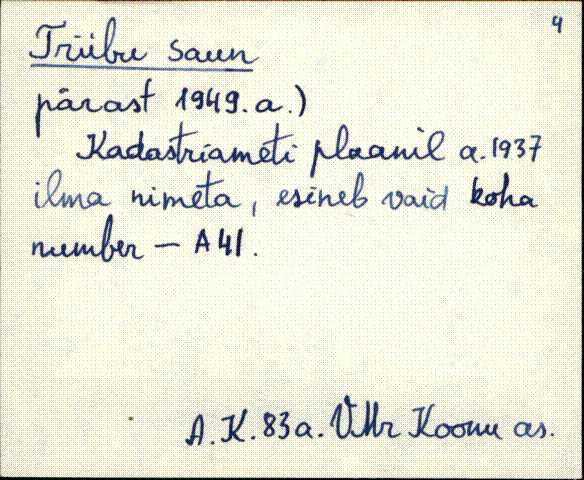 4
Triibu saun
pärast 1949.a.)
Kadastriameti plaanil a.1937
ilma nimeta, esineb vaid koha
number – A41.
A.K.83a. VMr Koonu as.